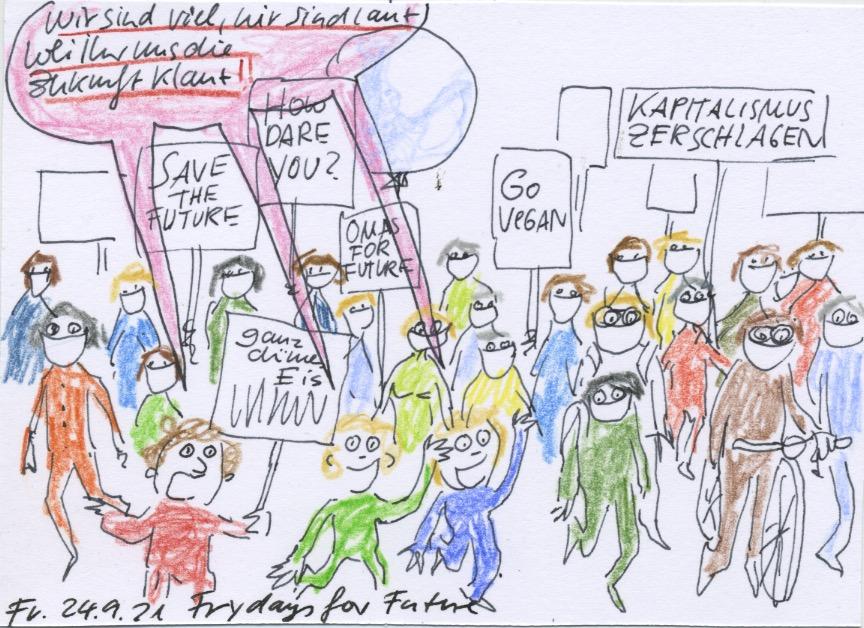 Wir sind viel, wir sind laut
Weil Ihr uns die
Zukunft klaut!
HOW
DARE
YOU?
SAVE
THE
FUTURE
OMAS
FOR
FUTURE
GO
VEGAN
KAPITALISMUS
ZERSCHLAGEN
ganz
dünne
Eis
Fr. 24.9.21 Frydays for Future